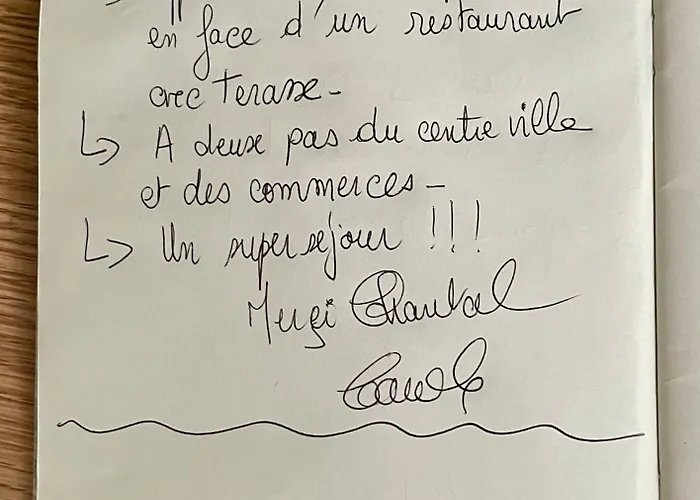 en face d'un restaurant
avec Terasse -
↳ A deux pas du centre ville
et des commerces -
↳ Un super séjour !!!
Merçi Chantal